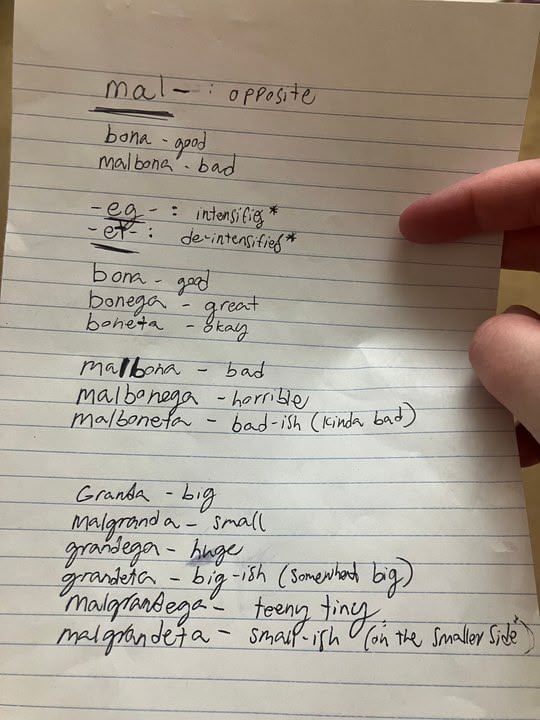 mal- : opposite
bona - good
malbona - bad
-eg- : intensifies*
-et- : de-intensifies*
bona - good
bonega - great
boneta - okay
malbona - bad
malbonega - horrible
malboneta - bad-ish (kinda bad)
Granda - big
malgranda - small
grandega - huge
grandeta - big-ish (somewhat big)
malgrandega - teeny tiny
malgrandeta - small-ish (on the smaller side)